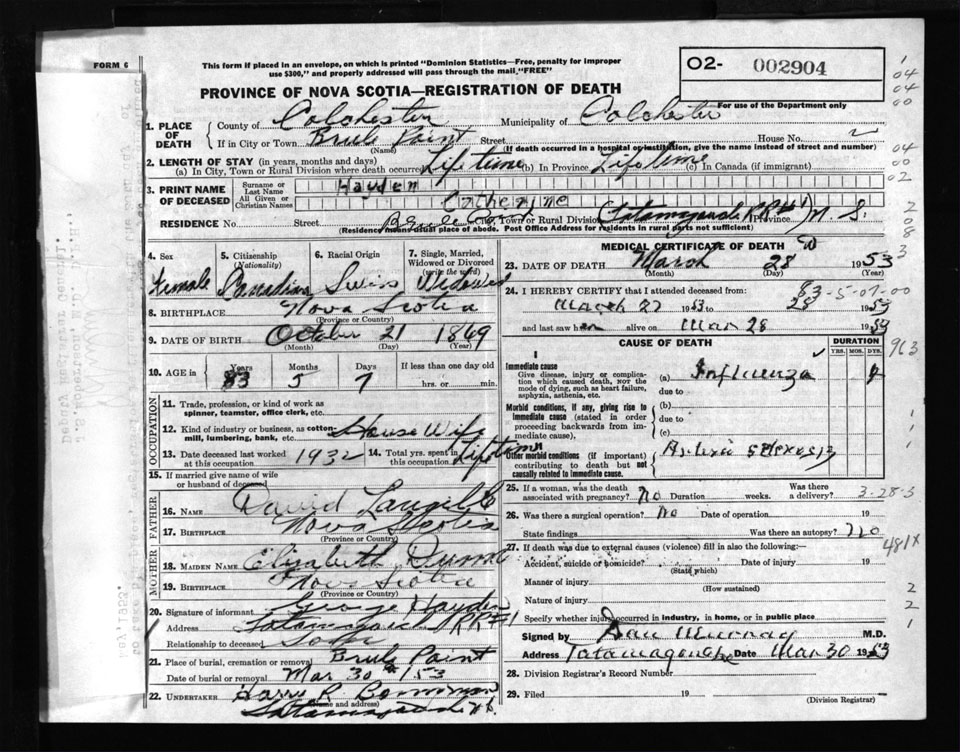 FORM 6
This form if placed in an envelope, on which is printed "Dominion Statistics—Free, penalty for improper
use $300," and properly addressed will pass through the mail "FREE"
O2- 002904
For use of the Department only
PROVINCE OF NOVA SCOTIA—REGISTRATION OF DEATH
1. PLACE OF DEATH { County of Colchester Municipality of Colchester
If in City or Town Brule Point Street House No.
(Name) (If death occurred in a hospital or institution, give the name instead of street and number)
2. LENGTH OF STAY (in years, months and days)
(a) In City, Town or Rural Division where death occurred Lifetime (b) In Province Lifetime (c) In Canada (if immigrant)
3. PRINT NAME OF DECEASED { Surname or Last Name Hayden
All Given or Christian Names Catherine
RESIDENCE No. Street Brule City, Town or Rural Division (Tatamagouche RR#1) Province N. S.
(Residence means usual place of abode. Post Office Address for residents in rural parts not sufficient)
4. Sex Female
5. Citizenship (Nationality) Canadian
6. Racial Origin Swiss
7. Single, Married, Widowed or Divorced (write the word) Widowed
8. BIRTHPLACE Nova Scotia
(Province or Country)
9. DATE OF BIRTH October 21 1869
(Month) (Day) (Year)
10. AGE in { Years 83 Months 5 Days 7 If less than one day old
hrs. or min.
OCCUPATION
11. Trade, profession, or kind of work as
spinner, teamster, office clerk, etc.
12. Kind of industry or business, as cotton-
mill, lumbering, bank, etc. House Wife
13. Date deceased last worked at this occupation 1932
14. Total yrs. spent in this occupation Lifetime
15. If married give name of wife
or husband of deceased
FATHER
16. NAME David Langille
17. BIRTHPLACE Nova Scotia
(Province or Country)
MOTHER
18. MAIDEN NAME Elizabeth
19. BIRTHPLACE Nova Scotia
(Province or Country)
20. Signature of informant George Hayden
Address Tatamagouche RR#1
Relationship to deceased Son
21. Place of burial, cremation or removal Brule Point
Date of burial or removal Mar 30 1953
22. UNDERTAKER Harry R.
(Name and address)
Tatamagouche N.S.
MEDICAL CERTIFICATE OF DEATH
23. DATE OF DEATH March 28 1953
(Month) (Day) (Year)
24. I HEREBY CERTIFY that I attended deceased from:
83-5-07-00
March 27 1953 to 28 1953
and last saw her alive on Mar 28 19
CAUSE OF DEATH
DURATION
YRS. MOS. DYS.
I
Immediate cause
Give disease, injury or complica-
tion which caused death, nor the
mode of dying, such as heart failure,
asphyxia, asthenia, etc.
(a) Influenza
due to
Morbid conditions, if any, giving rise to
immediate cause (stated in order
proceeding backwards from im-
mediate cause),
(b)
due to
(c)
II
Other morbid conditions (if important)
contributing to death but not
causally related to immediate cause.
25. If a woman, was the death
associated with pregnancy? No Duration weeks. Was there
a delivery? 3-28-3
26. Was there a surgical operation? No Date of operation 19
State findings Was there an autopsy? no
27. If death was due to external causes (violence) fill in also the following:—
Accident, suicide or homicide? Date of injury 19
(State which)
Manner of injury
(How sustained)
Nature of injury
Specify whether injury occurred in industry, in home, or in public place
Signed by Dan Murray M.D.
Address Tatamagouche Date Mar 30 1953
28. Division Registrar's Record Number
29. Filed 19
(Division Registrar)
963
481X